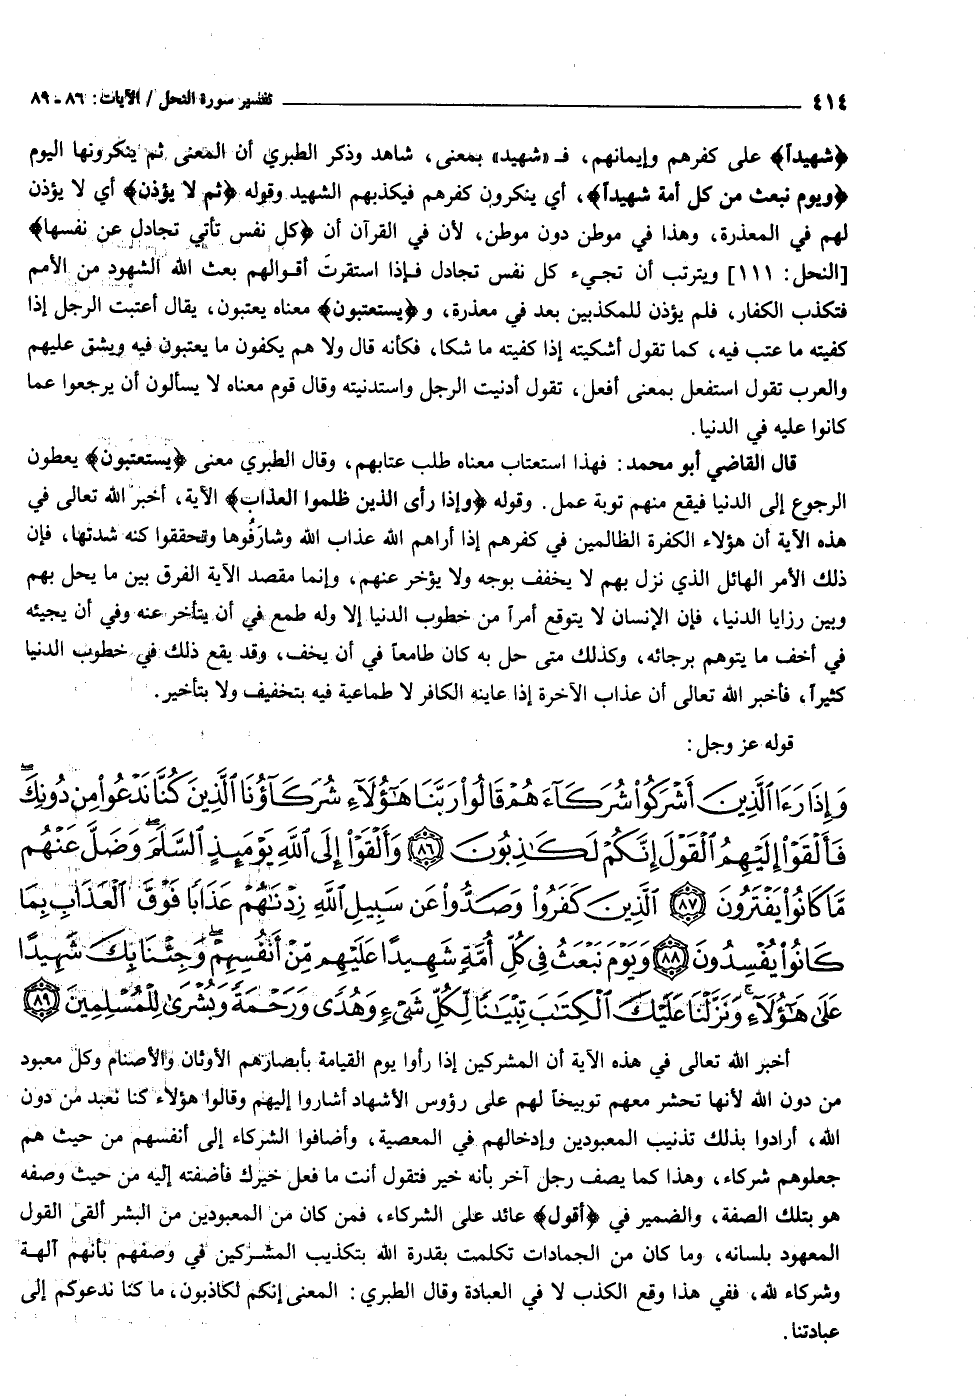 ٤١٤ تفسير سورة النحل / الآيات: ٨٦ - ٨٩
﴿شهيداً﴾ على كفرهم وإيمانهم، فـ «شهيد» بمعنى، شاهد وذكر الطبري أن المعنى ثم ينكرونها اليوم
﴿ويوم نبعث من كل أمة شهيداً﴾، أي ينكرون كفرهم فيكذبهم الشهيد وقوله ﴿ثم لا يؤذن﴾ أي لا يؤذن
لهم في المعذرة، وهذا في موطن دون موطن، لأن في القرآن أن ﴿كل نفس تأتي تجادل عن نفسها﴾
[النحل: ١١١] ويترتب أن تجيء كل نفس تجادل فإذا استقرت أقوالهم بعث الله الشهود من الأمم
فتكذب الكفار، فلم يؤذن للمكذبين بعد في معذرة، و ﴿يستعتبون﴾ معناه يعتبون، يقال أعتبت الرجل إذا
كفيته ما عتب فيه، كما تقول أشكيته إذا كفيته ما شكا، فكأنه قال ولا هم يكفون ما يعتبون فيه ويشق عليهم
والعرب تقول استفعل بمعنى أفعل، تقول أدنيت الرجل واستدنيته وقال قوم معناه لا يسألون أن يرجعوا عما
كانوا عليه في الدنيا.
قال القاضي أبو محمد: فهذا استعتاب معناه طلب عتابهم، وقال الطبري معنى ﴿يستعتبون﴾ يعطون
الرجوع إلى الدنيا فيقع منهم توبة عمل. وقوله ﴿وإذا رأى الذين ظلموا العذاب﴾ الآية، أخبر الله تعالى في
هذه الآية أن هؤلاء الكفرة الظالمين في كفرهم إذا أراهم الله عذاب الله وشارَفُوها وتحققوا كنه شدتها، فإن
ذلك الأمر الهائل الذي نزل بهم لا يخفف بوجه ولا يؤخر عنهم، وإنما مقصد الآية الفرق بين ما يحل بهم
وبين رزايا الدنيا، فإن الإنسان لا يتوقع أمراً من خطوب الدنيا إلا وله طمع في أن يتأخر عنه وفي أن يجيئه
في أخف ما يتوهم برجائه، وكذلك متى حل به كان طامعاً في أن يخف، وقد يقع ذلك في خطوب الدنيا
كثيراً، فأخبر الله تعالى أن عذاب الآخرة إذا عاينه الكافر لا طماعية فيه بتخفيف ولا بتأخير.
قوله عز وجل:
وَإِذَا رَءَا ٱلَّذِينَ أَشْرَكُوا۟ شُرَكَآءَهُمْ قَالُوا۟ رَبَّنَا هَٰٓؤُلَآءِ شُرَكَآؤُنَا ٱلَّذِينَ كُنَّا نَدْعُوا۟ مِن دُونِكَۖ
فَأَلْقَوْا۟ إِلَيْهِمُ ٱلْقَوْلَ إِنَّكُمْ لَكَٰذِبُونَ ﴿٨٦﴾ وَأَلْقَوْا۟ إِلَى ٱللَّهِ يَوْمَئِذٍ ٱلسَّلَمَۖ وَضَلَّ عَنْهُم
مَّا كَانُوا۟ يَفْتَرُونَ ﴿٨٧﴾ ٱلَّذِينَ كَفَرُوا۟ وَصَدُّوا۟ عَن سَبِيلِ ٱللَّهِ زِدْنَٰهُمْ عَذَابًا فَوْقَ ٱلْعَذَابِ بِمَا
كَانُوا۟ يُفْسِدُونَ ﴿٨٨﴾ وَيَوْمَ نَبْعَثُ فِى كُلِّ أُمَّةٍ شَهِيدًا عَلَيْهِم مِّنْ أَنفُسِهِمْۖ وَجِئْنَا بِكَ شَهِيدًا
عَلَىٰ هَٰٓؤُلَآءِۚ وَنَزَّلْنَا عَلَيْكَ ٱلْكِتَٰبَ تِبْيَٰنًا لِّكُلِّ شَىْءٍ وَهُدًى وَرَحْمَةً وَبُشْرَىٰ لِلْمُسْلِمِينَ ﴿٨٩﴾
أخبر الله تعالى في هذه الآية أن المشركين إذا رأوا يوم القيامة بأبصارهم الأوثان والأصنام وكل معبود
من دون الله لأنها تحشر معهم توبيخاً لهم على رؤوس الأشهاد أشاروا إليهم وقالوا هؤلاء كنا نعبد من دون
الله، أرادوا بذلك تذنيب المعبودين وإدخالهم في المعصية، وأضافوا الشركاء إلى أنفسهم من حيث هم
جعلوهم شركاء، وهذا كما يصف رجل آخر بأنه خير فتقول أنت ما فعل خيرك فأضفته إليه من حيث وصفه
هو بتلك الصفة، والضمير في ﴿أقول﴾ عائد على الشركاء، فمن كان من المعبودين من البشر ألقى القول
المعهود بلسانه، وما كان من الجمادات تكلمت بقدرة الله بتكذيب المشركين في وصفهم بأنهم آلهة
وشركاء لله، ففي هذا وقع الكذب لا في العبادة وقال الطبري: المعنى إنكم لكاذبون، ما كنا ندعوكم إلى
عبادتنا.